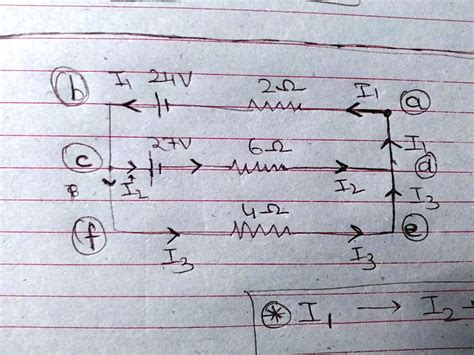 b I₁ 24V 2Ω I₁ a
27V 6Ω I₁
c I₂ I₂ d
B I₃
4Ω
f I₃ I₃ e
⊛ I₁ → I₂